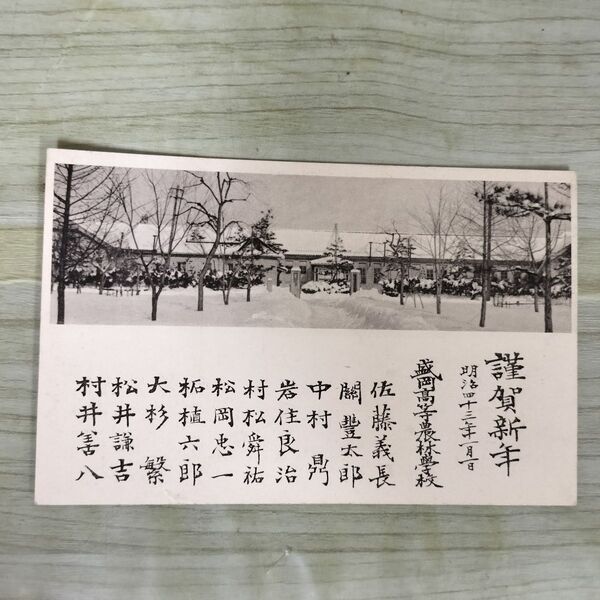 謹賀新年
明治四十三年一月一日
盛岡高等農林學校
佐藤義長
關豐太郎
中村鼎
岩住良治
村松舜祐
松岡忠一
柘植六郎
大杉繁
松井謙吉
村井善八